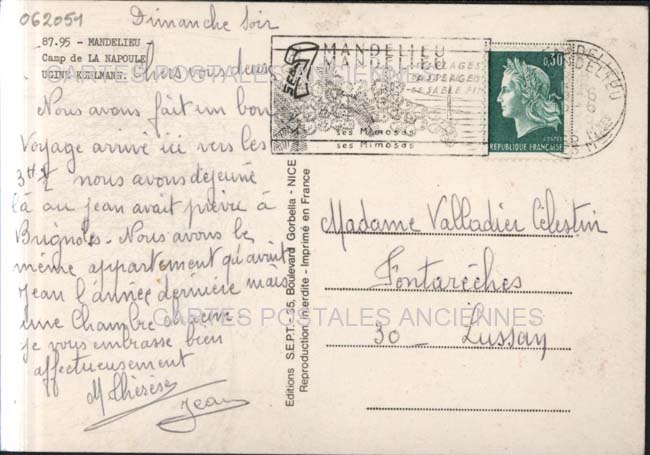 062051
Dimanche Soir
87.95 - MANDELIEU
Camp de LA NAPOULE
UGINE KUHLMANN.
Chers vous deux
Nous avons fait un bon
Voyage arrivé ici vers les
3H ½ nous avons déjeuné
là où jean avait prévu à
Brignoles. Nous avons le
même appartement qu'avait
jean l'année dernière mais
une Chambre chacun
je vous embrasse bien
affectueusement
M Thérèse
Jean
Editions SEPT - 35, Boulevard Gorbella - NICE
Reproduction interdite - Imprimé en France
SEPT
MANDELIEU
MANDELIEU
SES PLAGES
DE SABLE FIN
ses Mimosas
ses Mimosas
0,30
POSTES
REPUBLIQUE FRANÇAISE
MANDELIEU
Madame Valladier Célestin
Fontarèches
30 _ Lussan
CARTES POSTALES ANCIENNES
CARTES POSTALES ANCIENNES